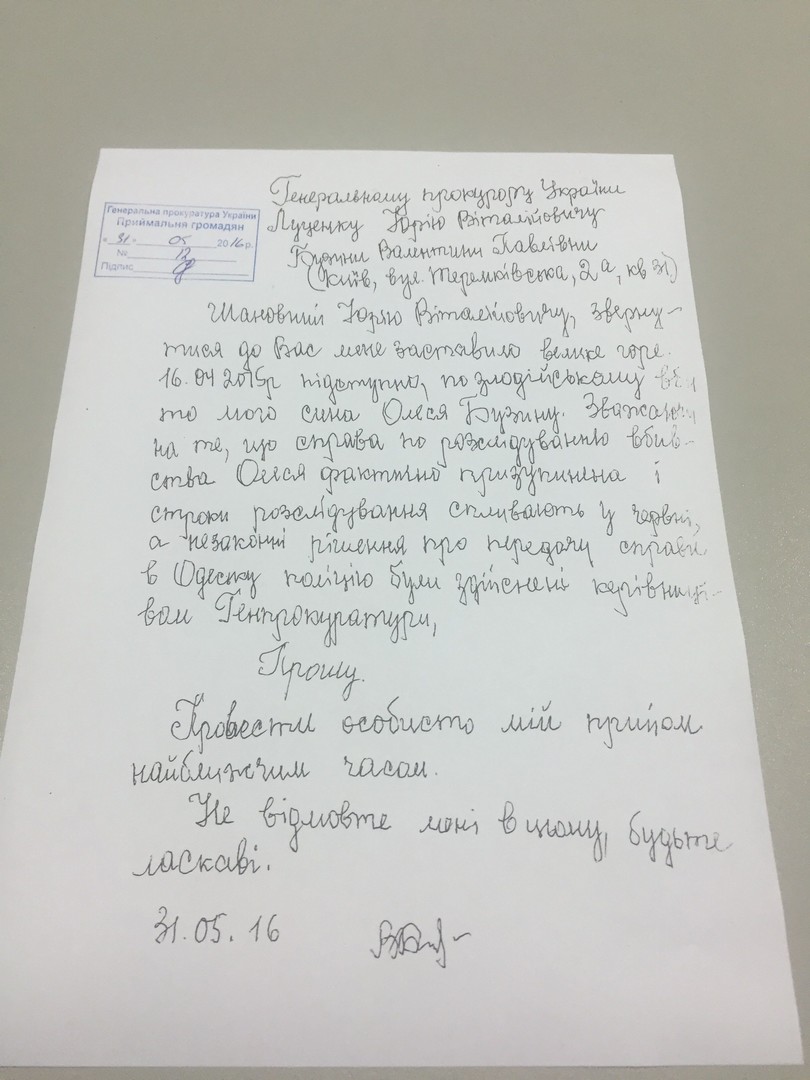 Генеральному прокурору України
Луценку Юрію Віталійовичу
Бузини Валентини Павлівни
(Київ, вул. Теремківська, 2а, кв 31)
Генеральна прокуратура України
Приймальня громадян
"31" 05 2016 р.
№ 12
Підпис
Шановний Юрію Віталійовичу, зверну-
тися до Вас мене заставило велике горе.
16.04 2015р підступно, по злодійському вби
то мого сина Олеся Бузину. Зважаючи
на те, що справа по розслідуванню вбив-
ства Олеся фактично призупинена і
строки розслідування спливають у червні,
а незаконні рішення про передачу справи
в Одеську поліцію були здійснені керівницт-
вом Генпрокуратури,
Прошу.
Провести особисто мій прийом
найближчим часом.
Не відмовте мені в цьому, будьте
ласкаві.
31.05.16